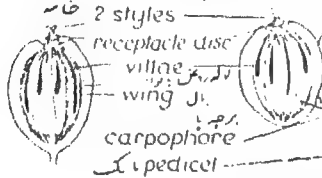 خامه
2 styles
receptacle disc
vittae
wing بال
carpophore
pedicel